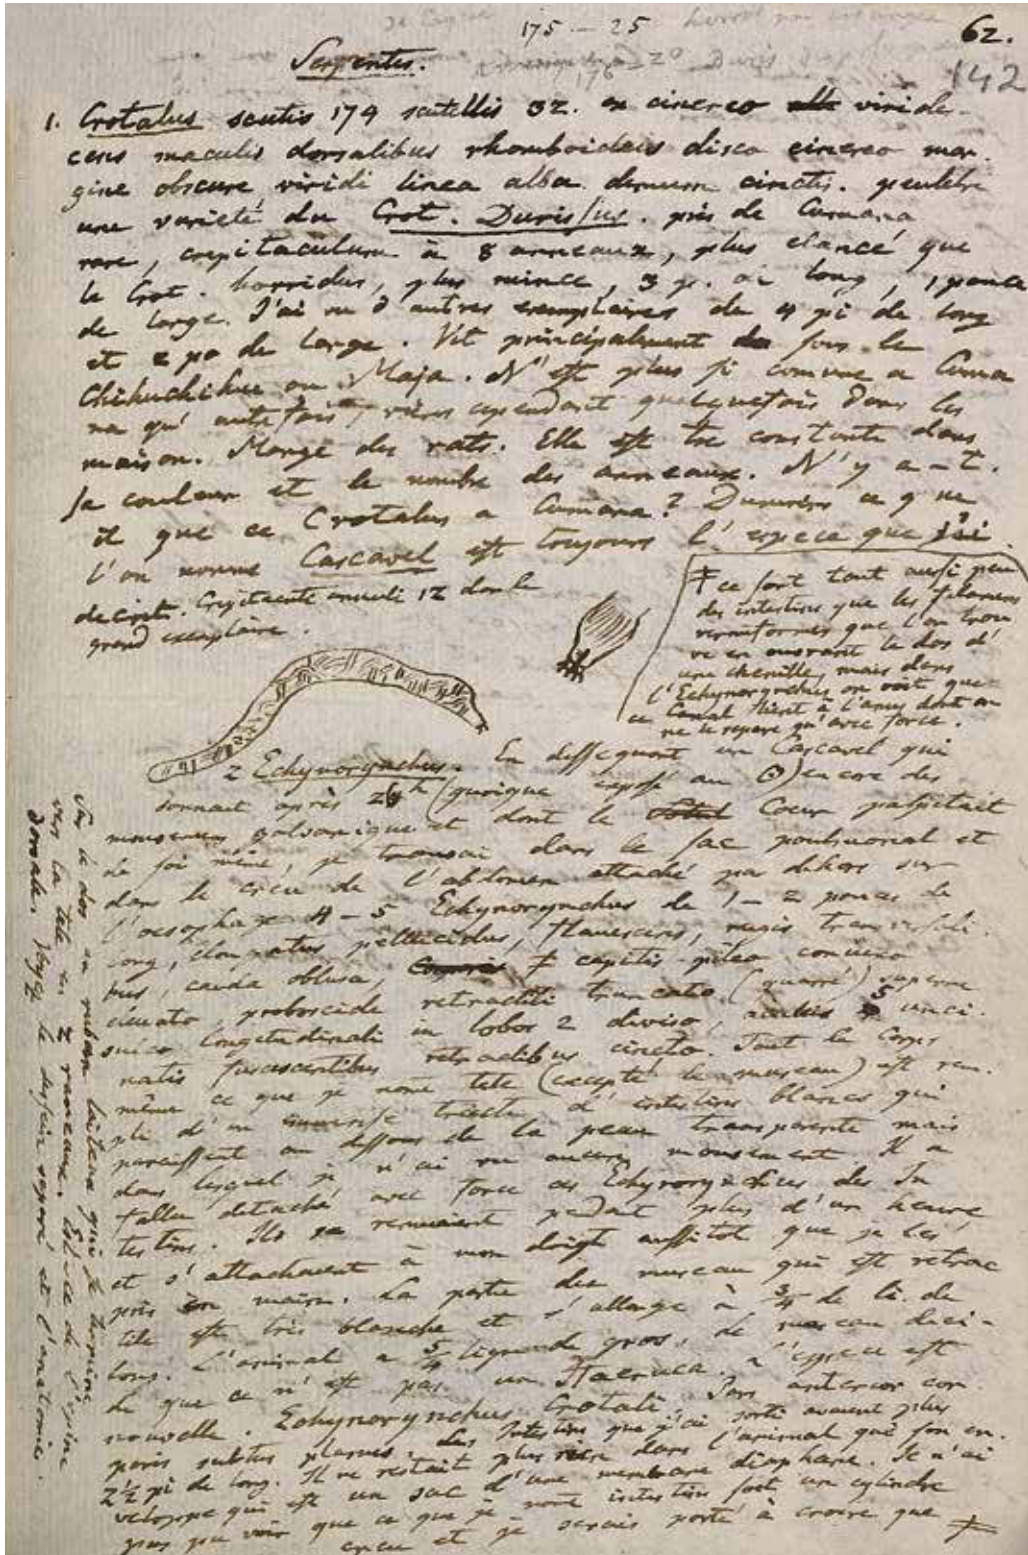 175 - 25
62.
142
Serpentes.
1. Crotalus scutis 174 scutellis 32. ex cinereo virides-
cens maculis dorsalibus rhomboideis disco cinereo mar-
gine obscure viridi linea alba demum cinctis. peutetre
une varieté du Crot. Durissus. près de Cumana
rare, crepitaculum à 8 anneaux, plus elancé que
le Crot. horridus, plus mince, 3 p. long, 1 pouce
de large. J'ai vu d'autres exemplaires de 4 pi de long
et 2 po de large. Vit principalement sous le
Chihuchihue ou Maja. N'est plus si comme a Cuma
na qu'autrefois, cependant quelquefois dans les
maison. Mange des rats. Elle est tre constante dans
sa couleur et le nombre des anneaux. N'y a-t-
il que ce Crotalus a Cumana? ce q ne
l'on nomme Cascavel est toujours l'espece que j'ai
decrit. annuli 12 dans le
grand exemplaire.
‡ ce sont tout aussi peu
des intestins que les filamens
vermiformes que l'on trou
ve en ouvrant le dos d'
une chenille, mais dans
l'Echynorynchus on voit que
ce Canal tient à l'anus dont on
ne le separe qu'avec force.
2 Echynorynchus. En dissequant un Cascavel qui
donnait après 24h (quoique exposé au ☉) encore des
mouvemens galvanique et dont le Coeur palpitait
de soi même, je trouvai dans le sac poulmonal et
dans le creu de l'abdomen attaché pa dehors sur
l'oesophage 4-5 Echynorynchus de 1-2 pouces de
long, elongatus pellucidus, flavescens, rugis transversali-
bus, cauda obtusa, ‡ capitis pileo convexo
proboscide retractili truncato (quarré) superne
sulco longitudinali in lobos 2 diviso, aculeis 5 unci-
natis fuscescentibus retractilibus cincto. Tout le Corps
même ce que je nome tete (excepté le museau) est rem-
pli d'un immense d'intestins blancs qui
paraissent au dessous de la peau transparente mais
dans lesquel je n'ai vu aucun mouvement. Il a
fallu detaché avec force ces Echynorynchus des In
testins. Ils se remuaient pedant plus d'un heure
et s'attachaient à mon doigt aussitot que je les
pris en main. La partie du museau qui est retrac
tile est très blanche et s'allonge à 3/4 de li. de
long. L'animal a 5/4 ligne de gros. Le museau deci-
de que ce n'est pas un Haeruca. L'espece est
nouvelle. Echynorynchus Crotali. Pars anterior cor-
poris subtus planus. Les Intestins que j'ai sorti avaient plus
2½ pi de long. Il ne restait plus rien dans l'animal que son en-
veloppe qui est un sac d'une membrane diaphane. Je n'ai
pas pu voir que ce que je nome intestins soit un cylindre
creu et je serais porté à croire que ‡
Sur le dos un ruban laiteux qui se termine
vers la tete en 2 rameaux. Est ce de l'épine
dorsale. Voyez le dessein separé et l'anatomie.